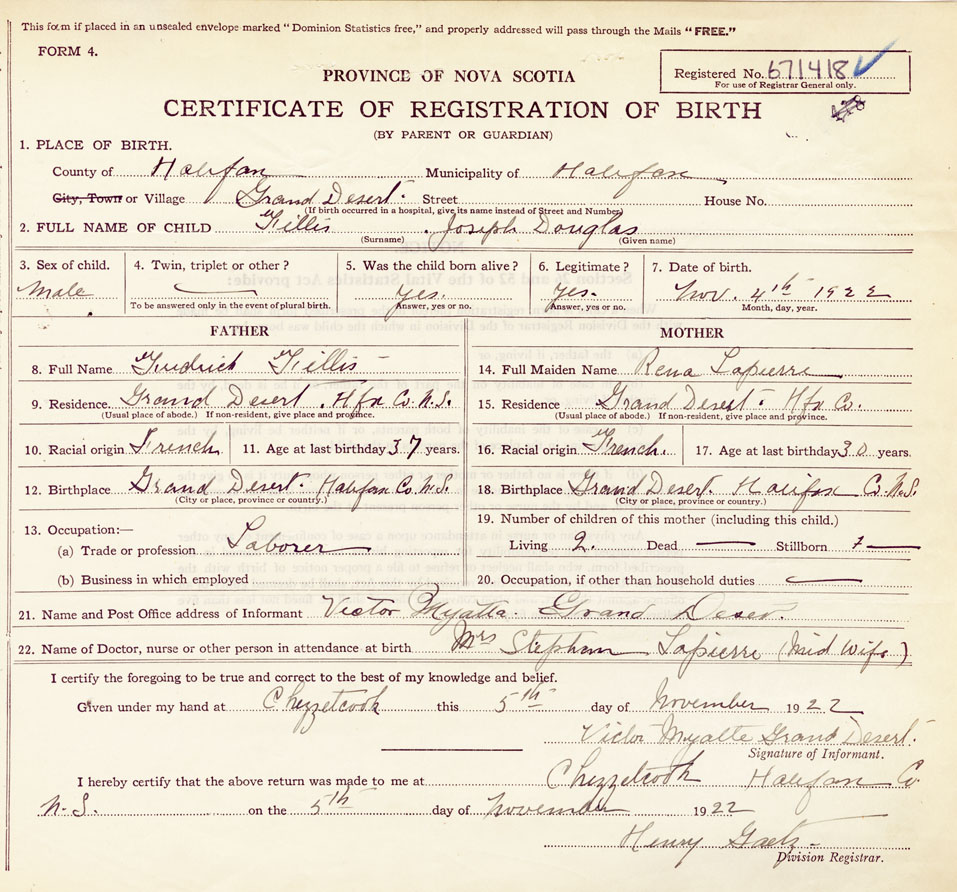 This form if placed in an unsealed envelope marked "Dominion Statistics free," and properly addressed will pass through the Mails "FREE."
FORM 4.
Registered No. 671418
For use of Registrar General only.
PROVINCE OF NOVA SCOTIA
CERTIFICATE OF REGISTRATION OF BIRTH
(BY PARENT OR GUARDIAN)
1. PLACE OF BIRTH.
County of Halifax Municipality of Halifax
City, Town or Village Grand Desert. Street House No.
(If birth occurred in a hospital, give its name instead of Street and Number)
2. FULL NAME OF CHILD Fillis Joseph Douglas
(Surname) (Given name)
3. Sex of child. 4. Twin, triplet or other? 5. Was the child born alive? 6. Legitimate? 7. Date of birth.
Male — Yes. Yes. Nov. 4th 1922
To be answered only in the event of plural birth. Answer, yes or no. Answer, yes or no. Month, day, year.
FATHER MOTHER
8. Full Name Fillis 14. Full Maiden Name Rena Lapierre
9. Residence. Grand Desert. Hfx Co. N.S. 15. Residence Grand Desert. Hfx Co.
(Usual place of abode.) If non-resident, give place and province. (Usual place of abode.) If non-resident, give place and province.
10. Racial origin French 11. Age at last birthday 37 years. 16. Racial origin French. 17. Age at last birthday 30 years.
12. Birthplace Grand Desert. Halifax Co. N.S. 18. Birthplace Grand Desert. Halifax Co. N.S.
(City or place, province or country.) (City or place, province or country.)
13. Occupation:— 19. Number of children of this mother (including this child.)
(a) Trade or profession Laborer Living 2. Dead — Stillborn —
(b) Business in which employed 20. Occupation, if other than household duties —
21. Name and Post Office address of Informant Victor Myatte. Grand Deser.
22. Name of Doctor, nurse or other person in attendance at birth Mrs Stephen Lapierre (Mid Wife)
I certify the foregoing to be true and correct to the best of my knowledge and belief.
Given under my hand at Chezzetcook this 5th day of November 1922
Victor Myatte Grand Desert.
Signature of Informant.
I hereby certify that the above return was made to me at Chezzetcook Halifax Co
N.S. on the 5th day of November 1922
Henry Gaetz
Division Registrar.